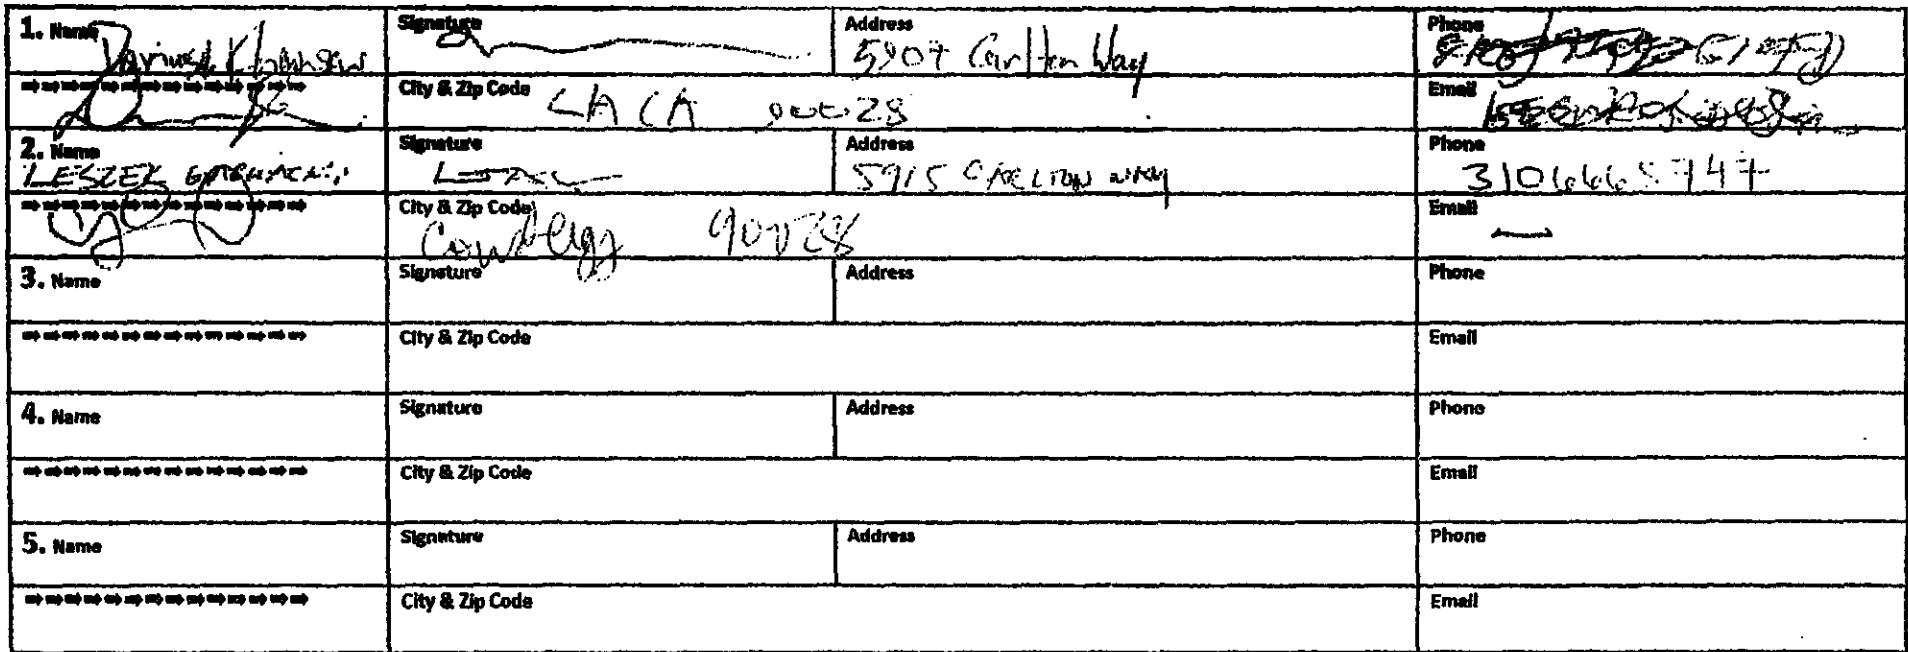 1. Name Signature Address Phone
5907 Carlton Way
City & Zip Code Email
LA CA 90028
2. Name Signature Address Phone
LESZEK 5915 CARLTON WAY 3106665747
City & Zip Code Email
90028 —
3. Name Signature Address Phone
City & Zip Code Email
4. Name Signature Address Phone
City & Zip Code Email
5. Name Signature Address Phone
City & Zip Code Email